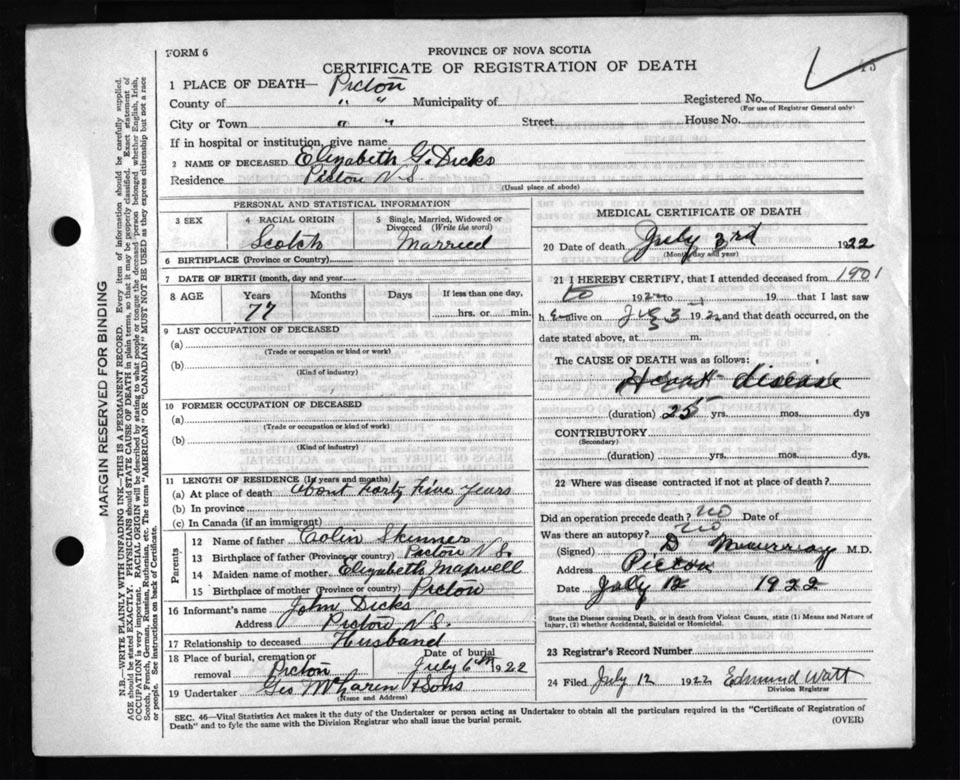 FORM 6
PROVINCE OF NOVA SCOTIA
CERTIFICATE OF REGISTRATION OF DEATH
1 PLACE OF DEATH— Pictou
County of " " Municipality of Registered No.
(For use of Registrar General only)
City or Town " " Street House No.
If in hospital or institution, give name
2 NAME OF DECEASED Elizabeth G. Dicks
Residence Pictou N.S.
(Usual place of abode)
PERSONAL AND STATISTICAL INFORMATION
3 SEX 4 RACIAL ORIGIN 5 Single, Married, Widowed or Divorced (Write the word)
Scotch Married
6 BIRTHPLACE (Province or Country)
7 DATE OF BIRTH (month, day and year)
8 AGE Years Months Days If less than one day,
77 hrs. or min.
9 LAST OCCUPATION OF DECEASED
(a)
(Trade or occupation or kind or work)
(b)
(Kind of industry)
10 FORMER OCCUPATION OF DECEASED
(a)
(Trade or occupation or kind of work)
(b)
(Kind of industry)
11 LENGTH OF RESIDENCE (In years and months)
(a) At place of death About forty five years
(b) In province
(c) In Canada (if an immigrant)
Parents
12 Name of father Colin Skinner
13 Birthplace of father (Province or country) Pictou N.S.
14 Maiden name of mother Elizabeth Maxwell
15 Birthplace of mother (Province or country) Pictou
16 Informant's name John Dicks
Address Pictou N.S.
17 Relationship to deceased Husband
18 Place of burial, cremation or removal Pictou Date of burial July 6th 1922
19 Undertaker Geo McLaren & Sons
(Name and Address)
MEDICAL CERTIFICATE OF DEATH
20 Date of death July 3rd 1922
(Month, day and year)
21 I HEREBY CERTIFY, that I attended deceased from 1901
to 1922 to 19 that I last saw
h e alive on 3 1922 and that death occurred, on the
date stated above, at m.
The CAUSE OF DEATH was as follows:
Heart disease
(duration) 25 yrs. mos. dys
CONTRIBUTORY
(Secondary)
(duration) yrs. mos. dys.
22 Where was disease contracted if not at place of death?
Did an operation precede death? no Date of
Was there an autopsy? no
(Signed) D M.D.
Address Pictou
Date July 12 1922
State the Disease causing Death, or in death from Violent Causes, state (1) Means and Nature of Injury, (2) whether Accidental, Suicidal or Homicidal.
23 Registrar's Record Number
24 Filed July 12 1922 Edmund Watt
Division Registrar
SEC. 46—Vital Statistics Act makes it the duty of the Undertaker or person acting as Undertaker to obtain all the particulars required in the "Certificate of Registration of
Death" and to fyle the same with the Division Registrar who shall issue the burial permit.
(OVER)
MARGIN RESERVED FOR BINDING
N.B.—WRITE PLAINLY WITH UNFADING INK—THIS IS A PERMANENT RECORD. Every item of information should be carefully supplied.
AGE should be stated EXACTLY. PHYSICIANS should STATE CAUSE OF DEATH in plain terms, so that it may be properly classified. Exact statement of
OCCUPATION is very important. RACIAL ORIGIN will be described by stating to what people or tongue the deceased person belonged whether English, Irish,
Scotch, French, German, Russian, Ruthenian, etc. The terms "AMERICAN" OR "CANADIAN" MUST NOT BE USED as they express citizenship but not a race
or people. See instructions on back of Certificate.